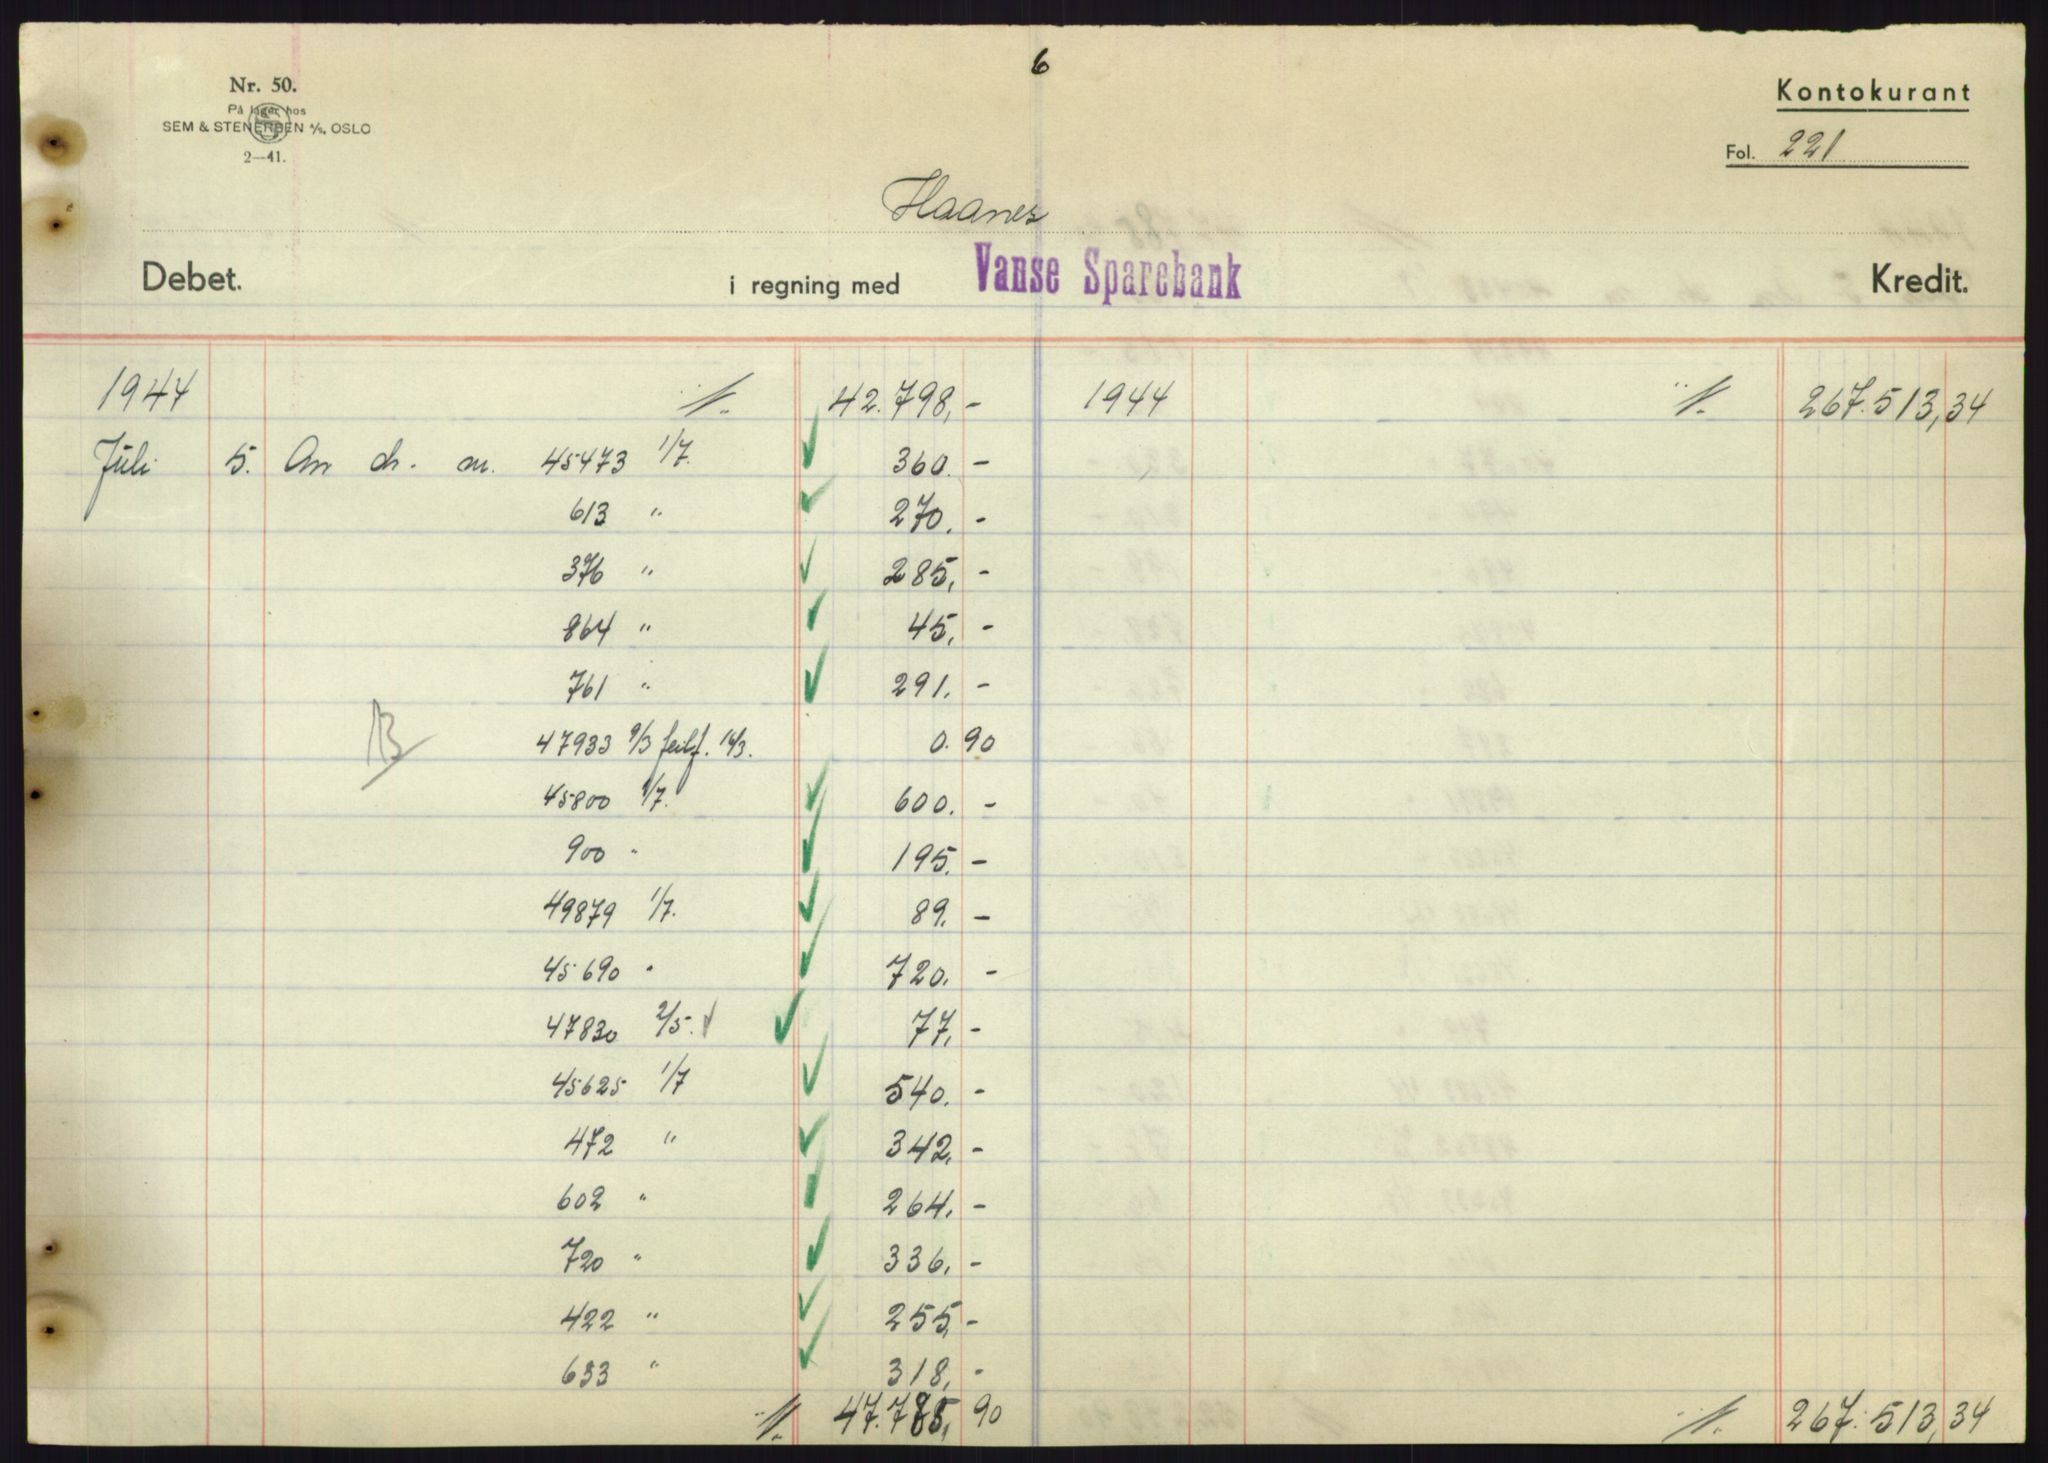 6
Nr. 50.
På lager hos
SEM & STENERSEN A/S, OSLO
2—41.
Kontokurant
Fol. 221
Haanes
Debet. i regning med Vanse Sparebank Kredit.
1944 42.798,- 1944 267.513,34
Juli 5. An ch. m. 45473 1/7. 360.-
613 " 270.-
376 " 285,-
864 " 45,-
761 " 291.-
B 47933 9/3 feilf. 14/3. 0.90
45800 1/7. 600.-
900 " 195.-
49879 1/7. 89.-
45690 " 720.-
47830 2/5. 77,-
45625 1/7 540.-
472 " 342,-
602 " 264,-
720 " 336,-
422 " 255,-
633 " 318,-
47.785,90 267.513,34